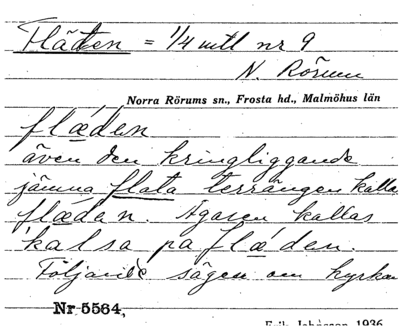 Flätten = 1/4 mtl nr 9
N. Rörum
Norra Rörums sn., Frosta hd., Malmöhus län
flæden
även den kringliggande
jämna flata terrängen kalla
flæden. Ägaren kallas
kalsa på flæden.
Följande sägen om kyrkan
Nr 5564,
Erik Johnsson 1936